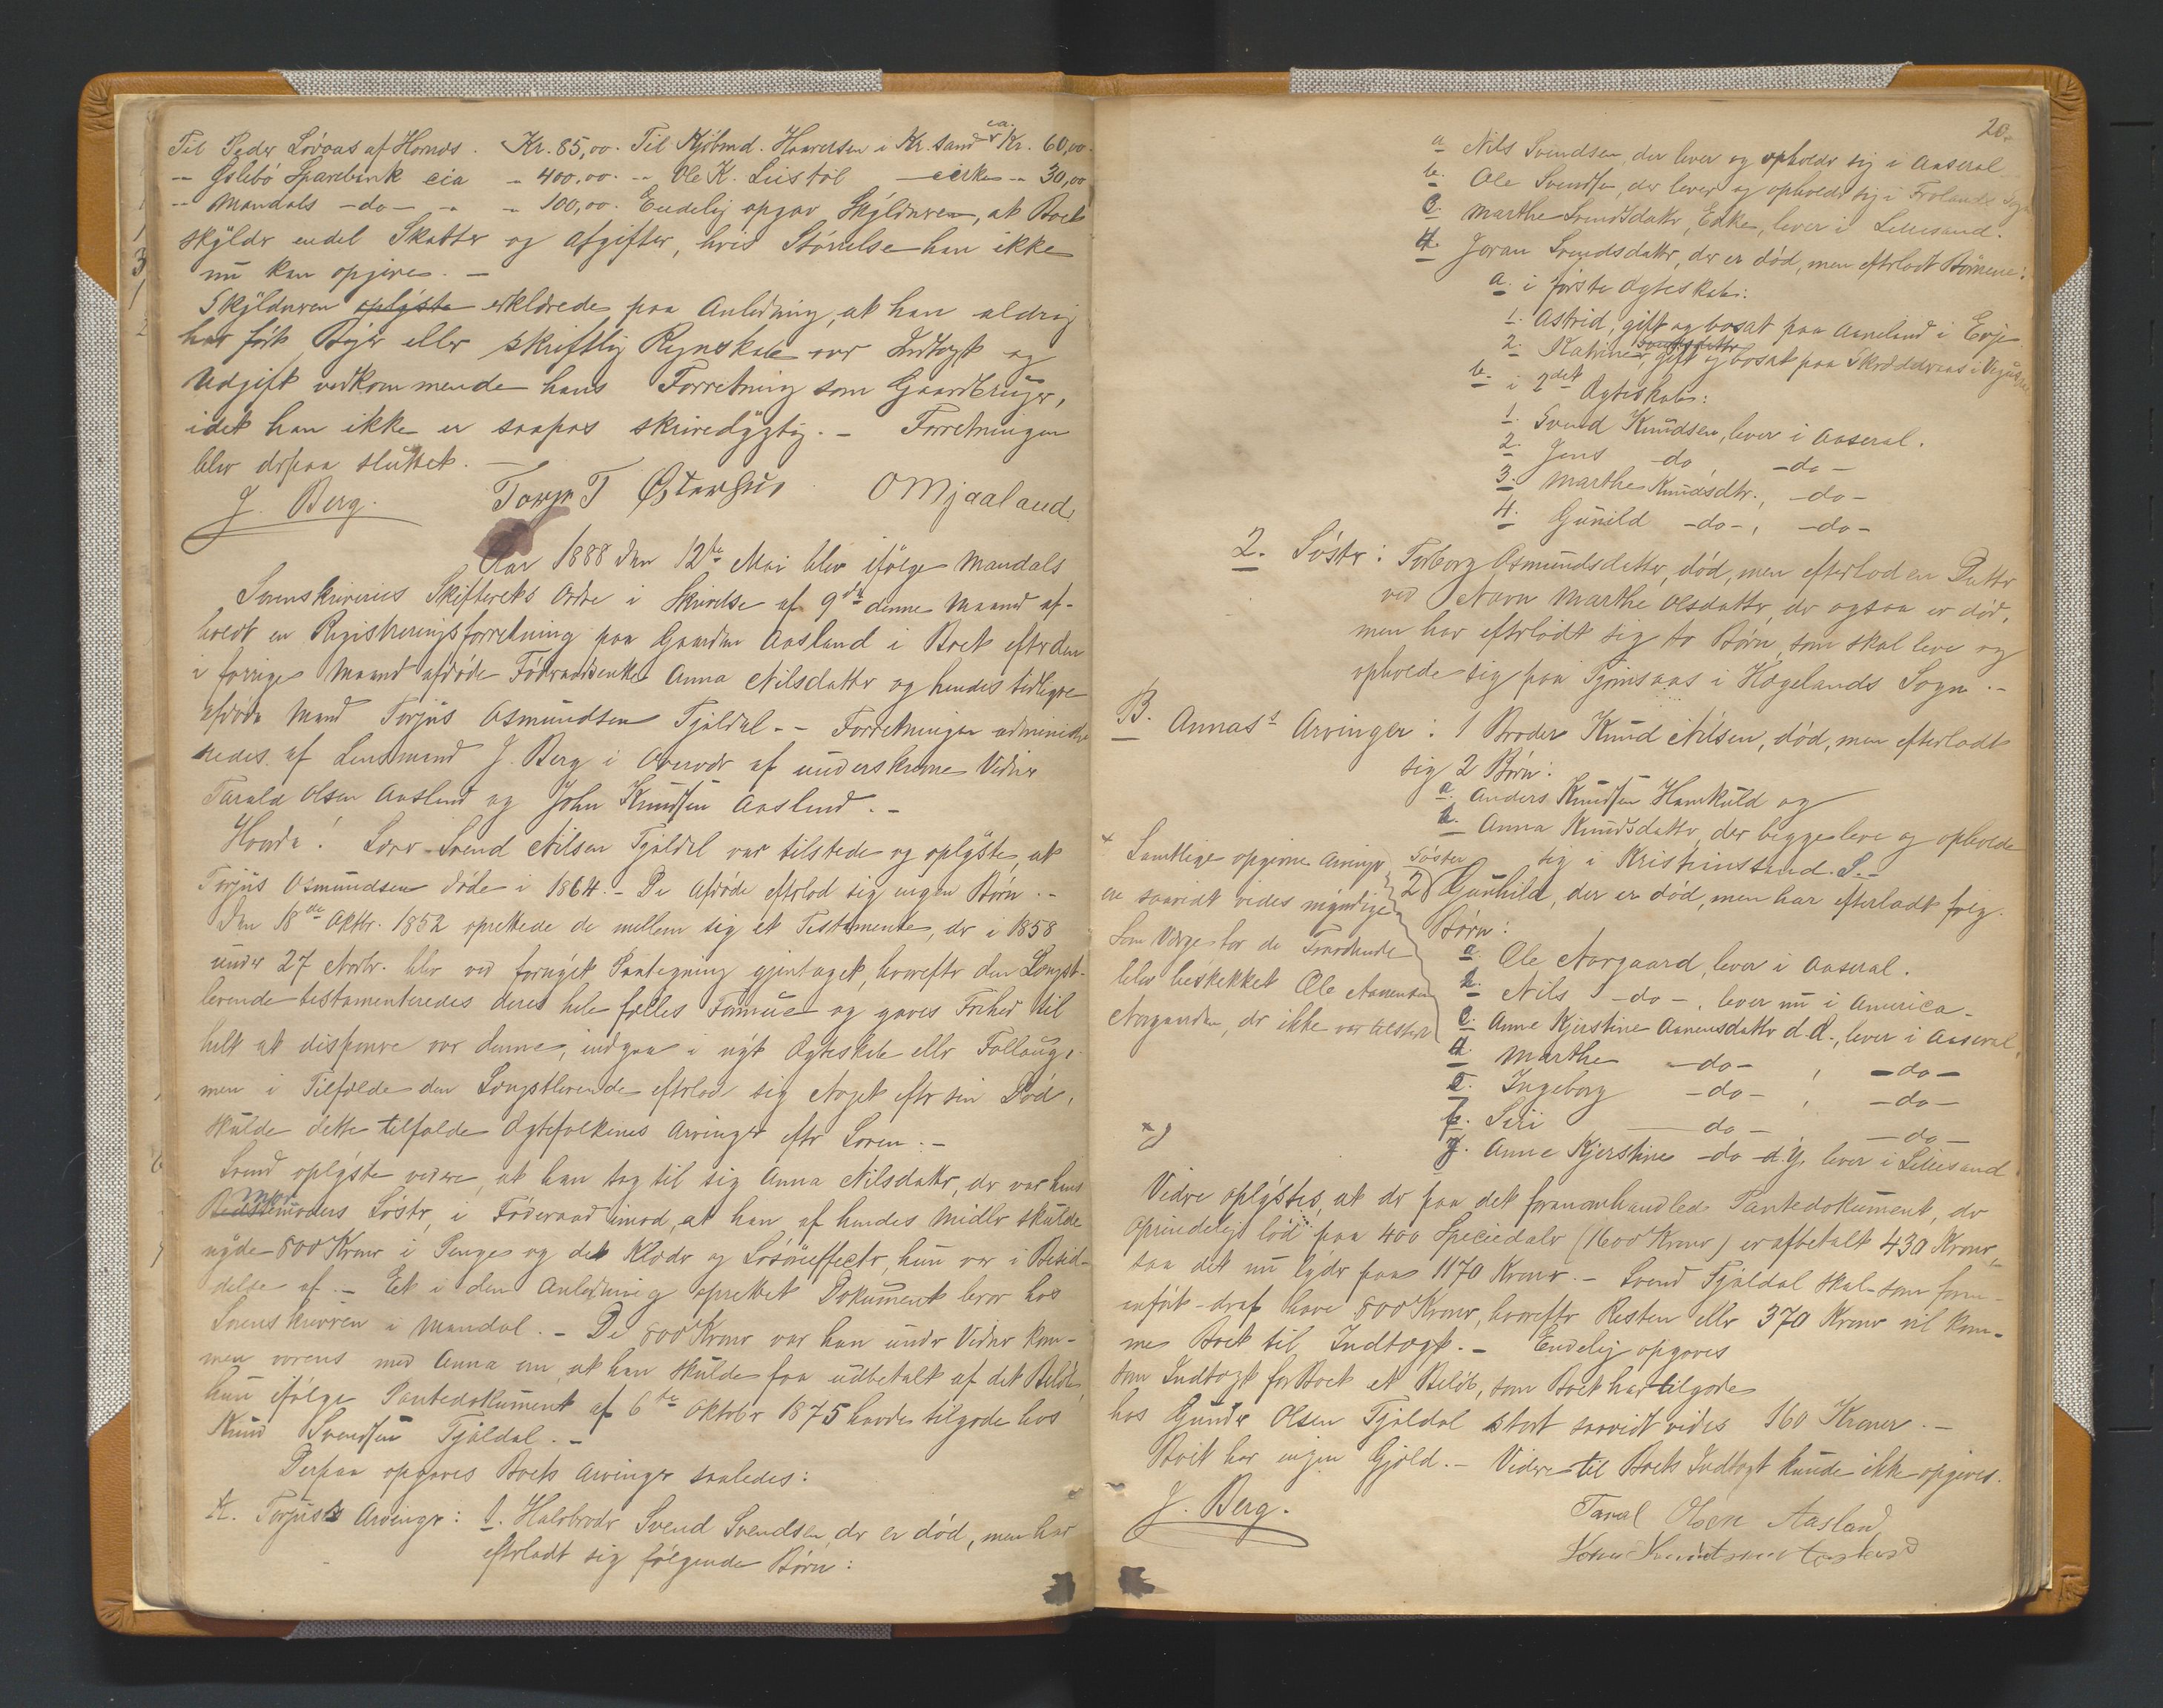 Til Peder Lövaas af Homs. Kr. 85,00. Til Kjöbmd. Haaversen i Kr.sand ca. Kr. 60,00.
-- Øslebö Sparebank cia - 400,00. -- Ole K. Liestöl cirka - 30,00
-- Mandals -do- - - 100,00. Endelig opgav Skÿldneren, at Boet
skÿlder endel Skatter og Afgifter, hvis Störrelse han ikke
nu kan opgive. -
Skÿldneren oplÿste erklærede paa Anledning, at han aldrig
har fört Böger eller skriftlig Regnskab over Indtægt og
Udgift vedkommende hans Forretning som Gaardbruger,
idet han ikke er saapas skrivedÿgtig. - Forretningen
blev derpaa sluttet. -
J. Berg. Torje T Øĭtarhus O Mjaaland
Aar 1888 den 12te Mai blev ifölge Mandals
Sorenskriveries Skifterets Ordre i Skrivelse af 9de denne Maaned af-
holdt en Registreringsforretning paa Gaarden Aasland i Boet efter den
i forrige Maaned afdöde Föderaadsenke Anna Nilsdatter og hendes tidligere
afdöde Mand Torjus Osmundsen Fjeldal. - Forretningen administre-
redes af Lensmand J. Berg i Overvær af underskrevne Vidner
Tarald Olsen Aasland og John Knudsen Aasland. -
Hvorda! Svend Nilsen Fjeldal var tilstede og oplÿste, at
Torjus Osmundsen döde i 1864. - De Afdöde efterlod sig ingen Börn. -
Den 18de Oktbr. 1852 oprettede de mellem sig et Testamente, der i 1858
under 27 Novbr. blev ved fornÿet Paategning gjentaget, hvorefter den Længst-
levende testamenteredes deres hele fælles Formue og gaves Frihed til
helt at disponere over denne, indgaa i nÿt Ægteskab eller Föllaug;
men i Tilfælde den Længstlevende efterlod sig Noget efter sin Död,
skulde dette tilfalde Ægtefolkenes Arvinger efter Loven. -
Svend oplÿste videre, at han tog til sig Anna Nilsdatter, der var hans
Bedstemoders Mor Söster, i Föderaad imod, at han af hendes Midler skulde
nÿde 800 Kroner i Penge og det Klæder og Lösöreffecter, hun var i Besid-
delse af. - Et i den Anledning oprettet Dokument beror hos
Sorenskriveren i Mandal. - De 800 Kroner var han under Vidner kom-
men overens med Anna om, at han skulde faa udbetalt af det Belöb,
hun ifölge Pantedokument af 6te Oktober 1875 havde tilgode hos
Knud Svendsen Fjeldal. -
Derpaa opgaves Boets Arvinger saaledes:
A. Torjus's Arvinger: 1. Halvbroder Svend Svendsen, der er död, men har
efterladt sig fölgende Börn:
20.
a Nils Svendsen, der lever og opholder sig i Aaseral
b. Ole Svendsen, der lever og opholder sig i Frolands Sogn
c. Marthe Svendsdatter, Enke, lever i Lillesand.
d. Joran Svendsdatter, der er död, men efterlodt Börnene:
a. i förste Ægteskab:
1. Astrid, gift og bosat paa Aaneland i Evje
2. Katrine Svendsdatter, gift og bosat paa
b. i 2det Ægteskab:
1. Svend Knudsen, lever i Aaseral.
2. Jens -do -do-
3. Marthe Knudsdtr., -do-
4. Gunild -do-, -do-
2. Söster: Torborg Osmundsdatter, död, men efterlod en Datter
ved Navn Marthe Olsdatter, der ogsaa er död,
men har efterlodt sig to Börn, som skal leve og
opholde sig paa Tjomsaas i Hægelands Sogn. -
B. Annas's Arvinger: 1 Broder Knud Nilsen, död, men efterladt
sig 2 Börn:
a. Anders Knudsen Hamkuld og
b. Anna Knudsdatter, der begge leve og opholde
sig i Kristianssand. S. -
2) Söster Gunhild, der er död, men har efterladt fölg.
Börn:
a. Ole Norgaard, lever i Aaseral.
b. Nils -do-. lever nu i America.
c. Anne Kjerstine Aanensdatter d.æ., lever i Aaseral.
d. Marthe -do- , -do-
e. Ingeborg -do- , -do-
f. Siri -do- -do-
g. Anne Kjerstine -do- d.y. lever i Lillesand
+ Samtlige opgivne Arvinger
ere saavidt vides myndige
Som Værge for de Fraværende
blev beskikket Ole Aanensen
Norgaarden, der ikke var tilstede
+)
Videre oplÿstes, at der paa det foranomhandlede Pantedokument, der
oprindeligt löd paa 400 Speciedaler (1600 Kroner) er afbetalt 430 Kroner,
saa det nu lÿder paa 1170 Kroner. - Svend Fjeldal skal som foran-
anfört - deraf have 800 Kroner, hvorefter Resten eller 370 Kroner vil kom-
me Boet til Indtægt. - Endelig opgaves
som Indtægt for Boet et Belöb, som Boet har tilgode
hos Gunder Olsen Fjeldal stort saavidt vides 160 Kroner. -
Boet har ingen Gjæld. - Videre til Boets Indtægt kunde ikke opgives.
J. Berg. Taral Olsen Aasland
John Knudtsen Aasland